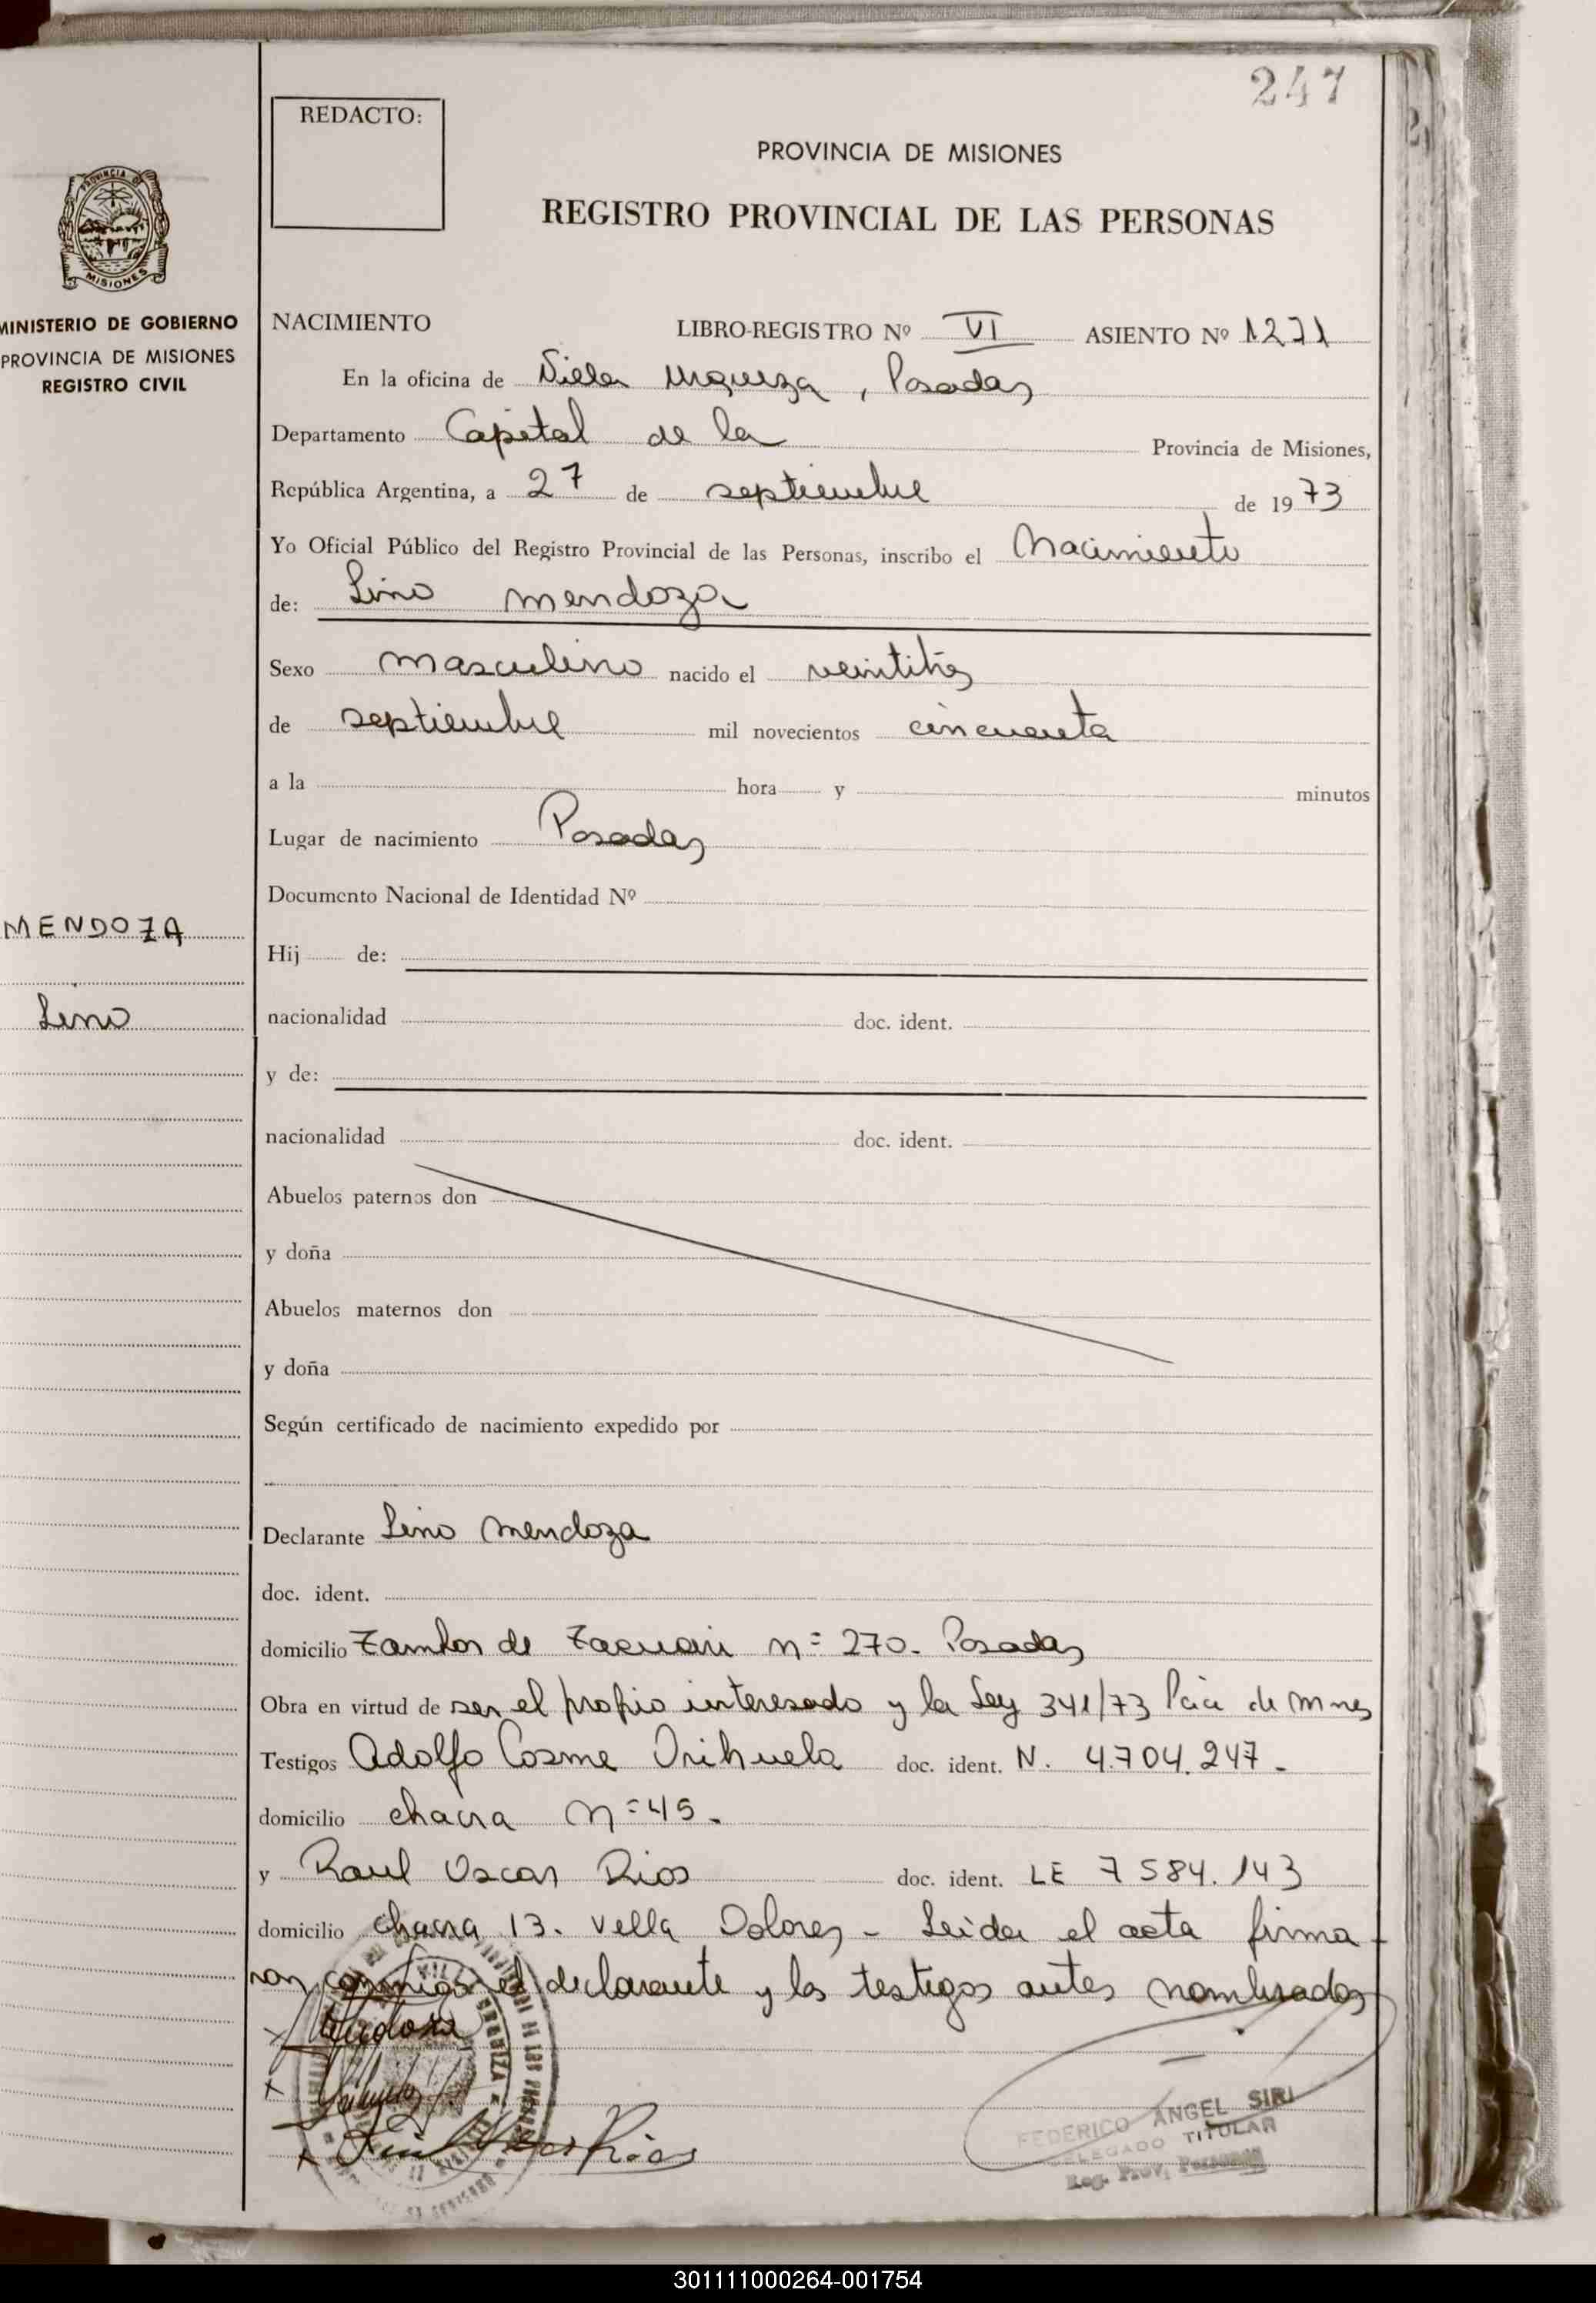 247
REDACTO:
PROVINCIA DE MISIONES
REGISTRO PROVINCIAL DE LAS PERSONAS
PROVINCIA DE
MISIONES
MINISTERIO DE GOBIERNO
PROVINCIA DE MISIONES
REGISTRO CIVIL
MENDOZA
Lino
NACIMIENTO LIBRO-REGISTRO Nº VI ASIENTO Nº 1271
En la oficina de Villa Urquiza, Posadas
Departamento Capital de la Provincia de Misiones,
República Argentina, a 27 de septiembre de 1973
Yo Oficial Público del Registro Provincial de las Personas, inscribo el Nacimiento
de: Lino Mendoza
Sexo masculino nacido el veintitrés
de septiembre mil novecientos cincuenta
a la hora y minutos
Lugar de nacimiento Posadas
Documento Nacional de Identidad Nº
Hij de:
nacionalidad doc. ident.
y de:
nacionalidad doc. ident.
Abuelos paternos don
y doña
Abuelos maternos don
y doña
Según certificado de nacimiento expedido por
Declarante Lino Mendoza
doc. ident.
domicilio Tambor de Tacuari n= 270. Posadas
Obra en virtud de ser el propio interesado y la Ley 341/73 Pcia de Mnes
Testigos Adolfo Cosme Orihuela doc. ident. N. 4.704.247-
domicilio chacra n=45.
y Raul Oscar Rios doc. ident. LE 7584.143
domicilio chacra 13. Villa Dolores - Leida el acta firma
ron conmigo el declarante y los testigos antes nombrados
Mendoza
Rios
FEDERICO ANGEL SIRI
DELEGADO TITULAR
Reg. Prov. Personas
301111000264-001754